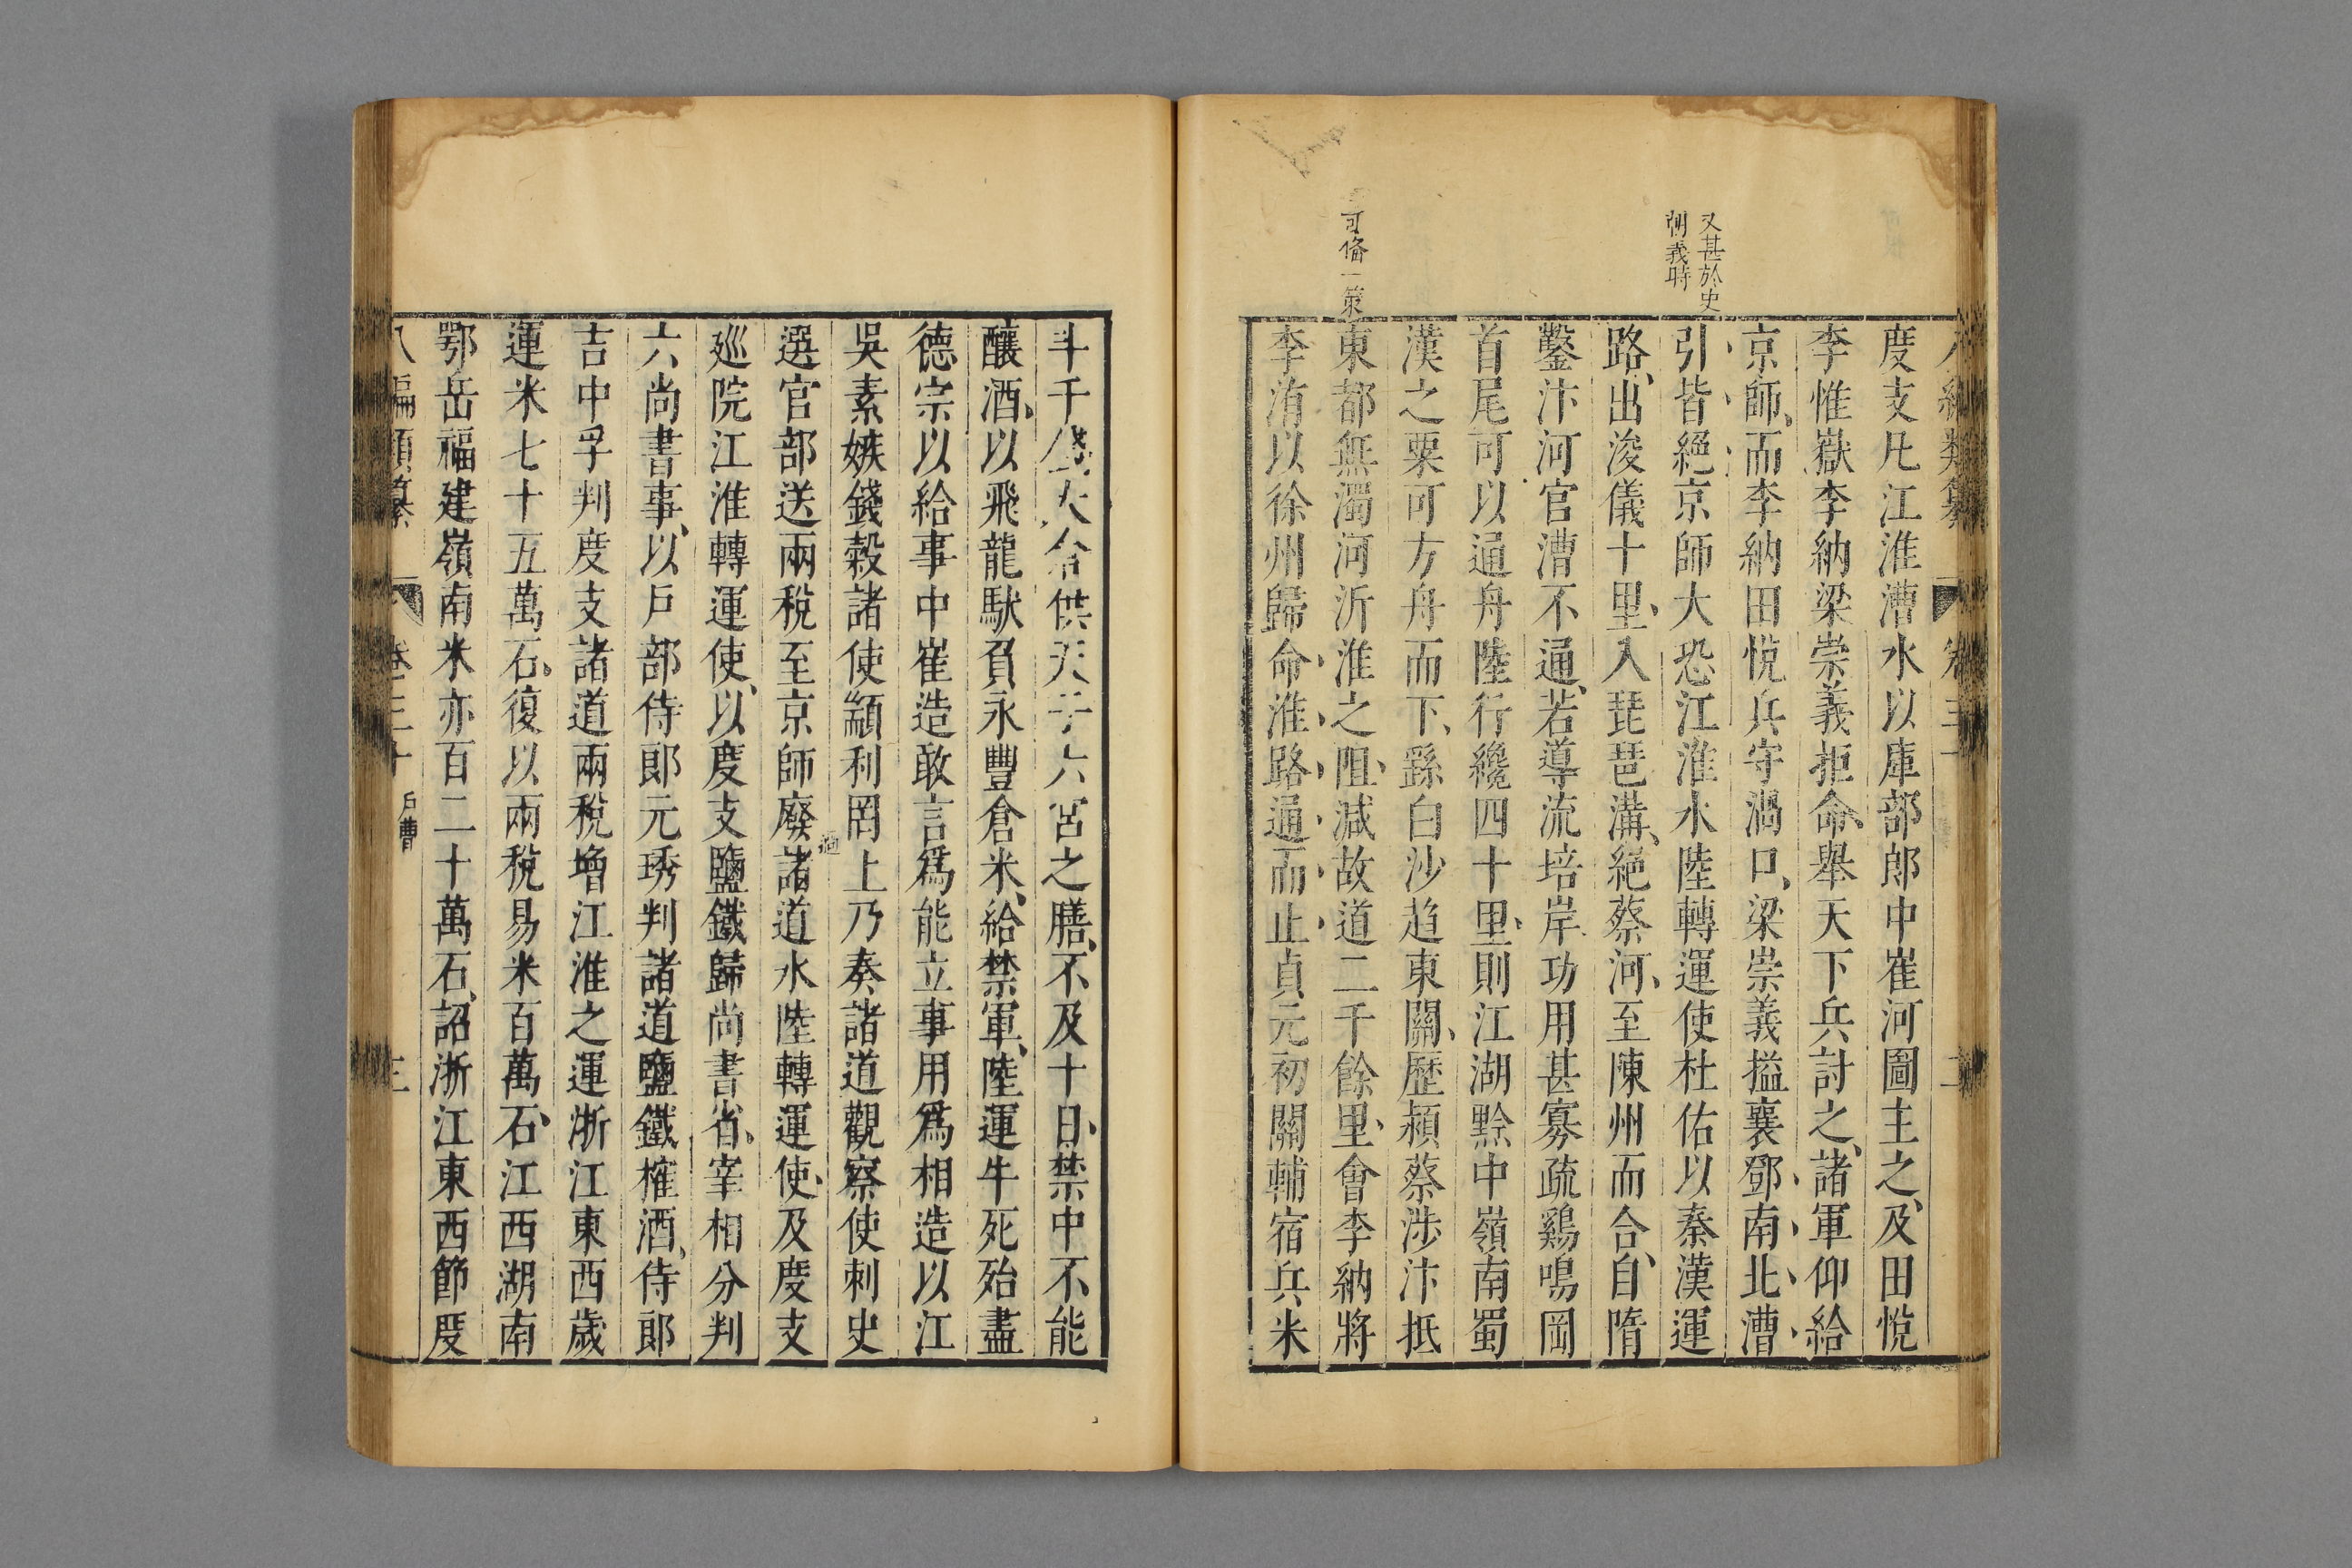 度支凡江淮漕水以庫部郎中崔河圖主之、及田悅
李惟嶽李納梁崇義拒命、舉天下兵討之、諸軍仰給
京師、而李納田悅兵守渦口、梁崇義搤襄鄧、南北漕
又甚於史
朝義時
引皆絕京師大恐江淮水陸轉運使杜佑以秦漢運
路、出浚儀十里、入琵琶溝、絕蔡河、至陳州而合、自隋
鑿汴河官漕不通、若導流培岸功用甚寡疏鷄鳴岡
首尾可以通舟陸行纔四十里、則江湖黔中嶺南蜀
漢之粟可方舟而下、繇白沙趋東關、歷潁蔡涉汴抵
可偹一策
東都無濁河泝淮之阻、減故道二千餘里、會李納將
李洧以徐州歸命、淮路通而止貞元初關輔宿兵米
斗千錢太倉供天子六宮之膳、不及十日、禁中不能
釀酒、以飛龍駄負永豐倉米、給禁軍、陸運牛死殆盡
德宗以給事中崔造敢言爲能立事用爲相造以江
吳素嫉錢穀諸使顓利罔上乃奏諸道觀察使刺史
選官部送兩稅至京師廢諸道水陸轉運使、及度支
廵院江淮轉運使、以度支鹽鐵歸尚書省、宰相分判
六尚書事、以戸部侍郎元琇判諸道鹽鐵榷酒、侍郎
吉中孚判度支諸道兩稅增江淮之運浙江東西歲
運米七十五萬石、復以兩稅易米百萬石、江西湖南
鄂岳福建嶺南米亦百二十萬石、詔浙江東西節度
八編類纂 卷三十 戸曹 三